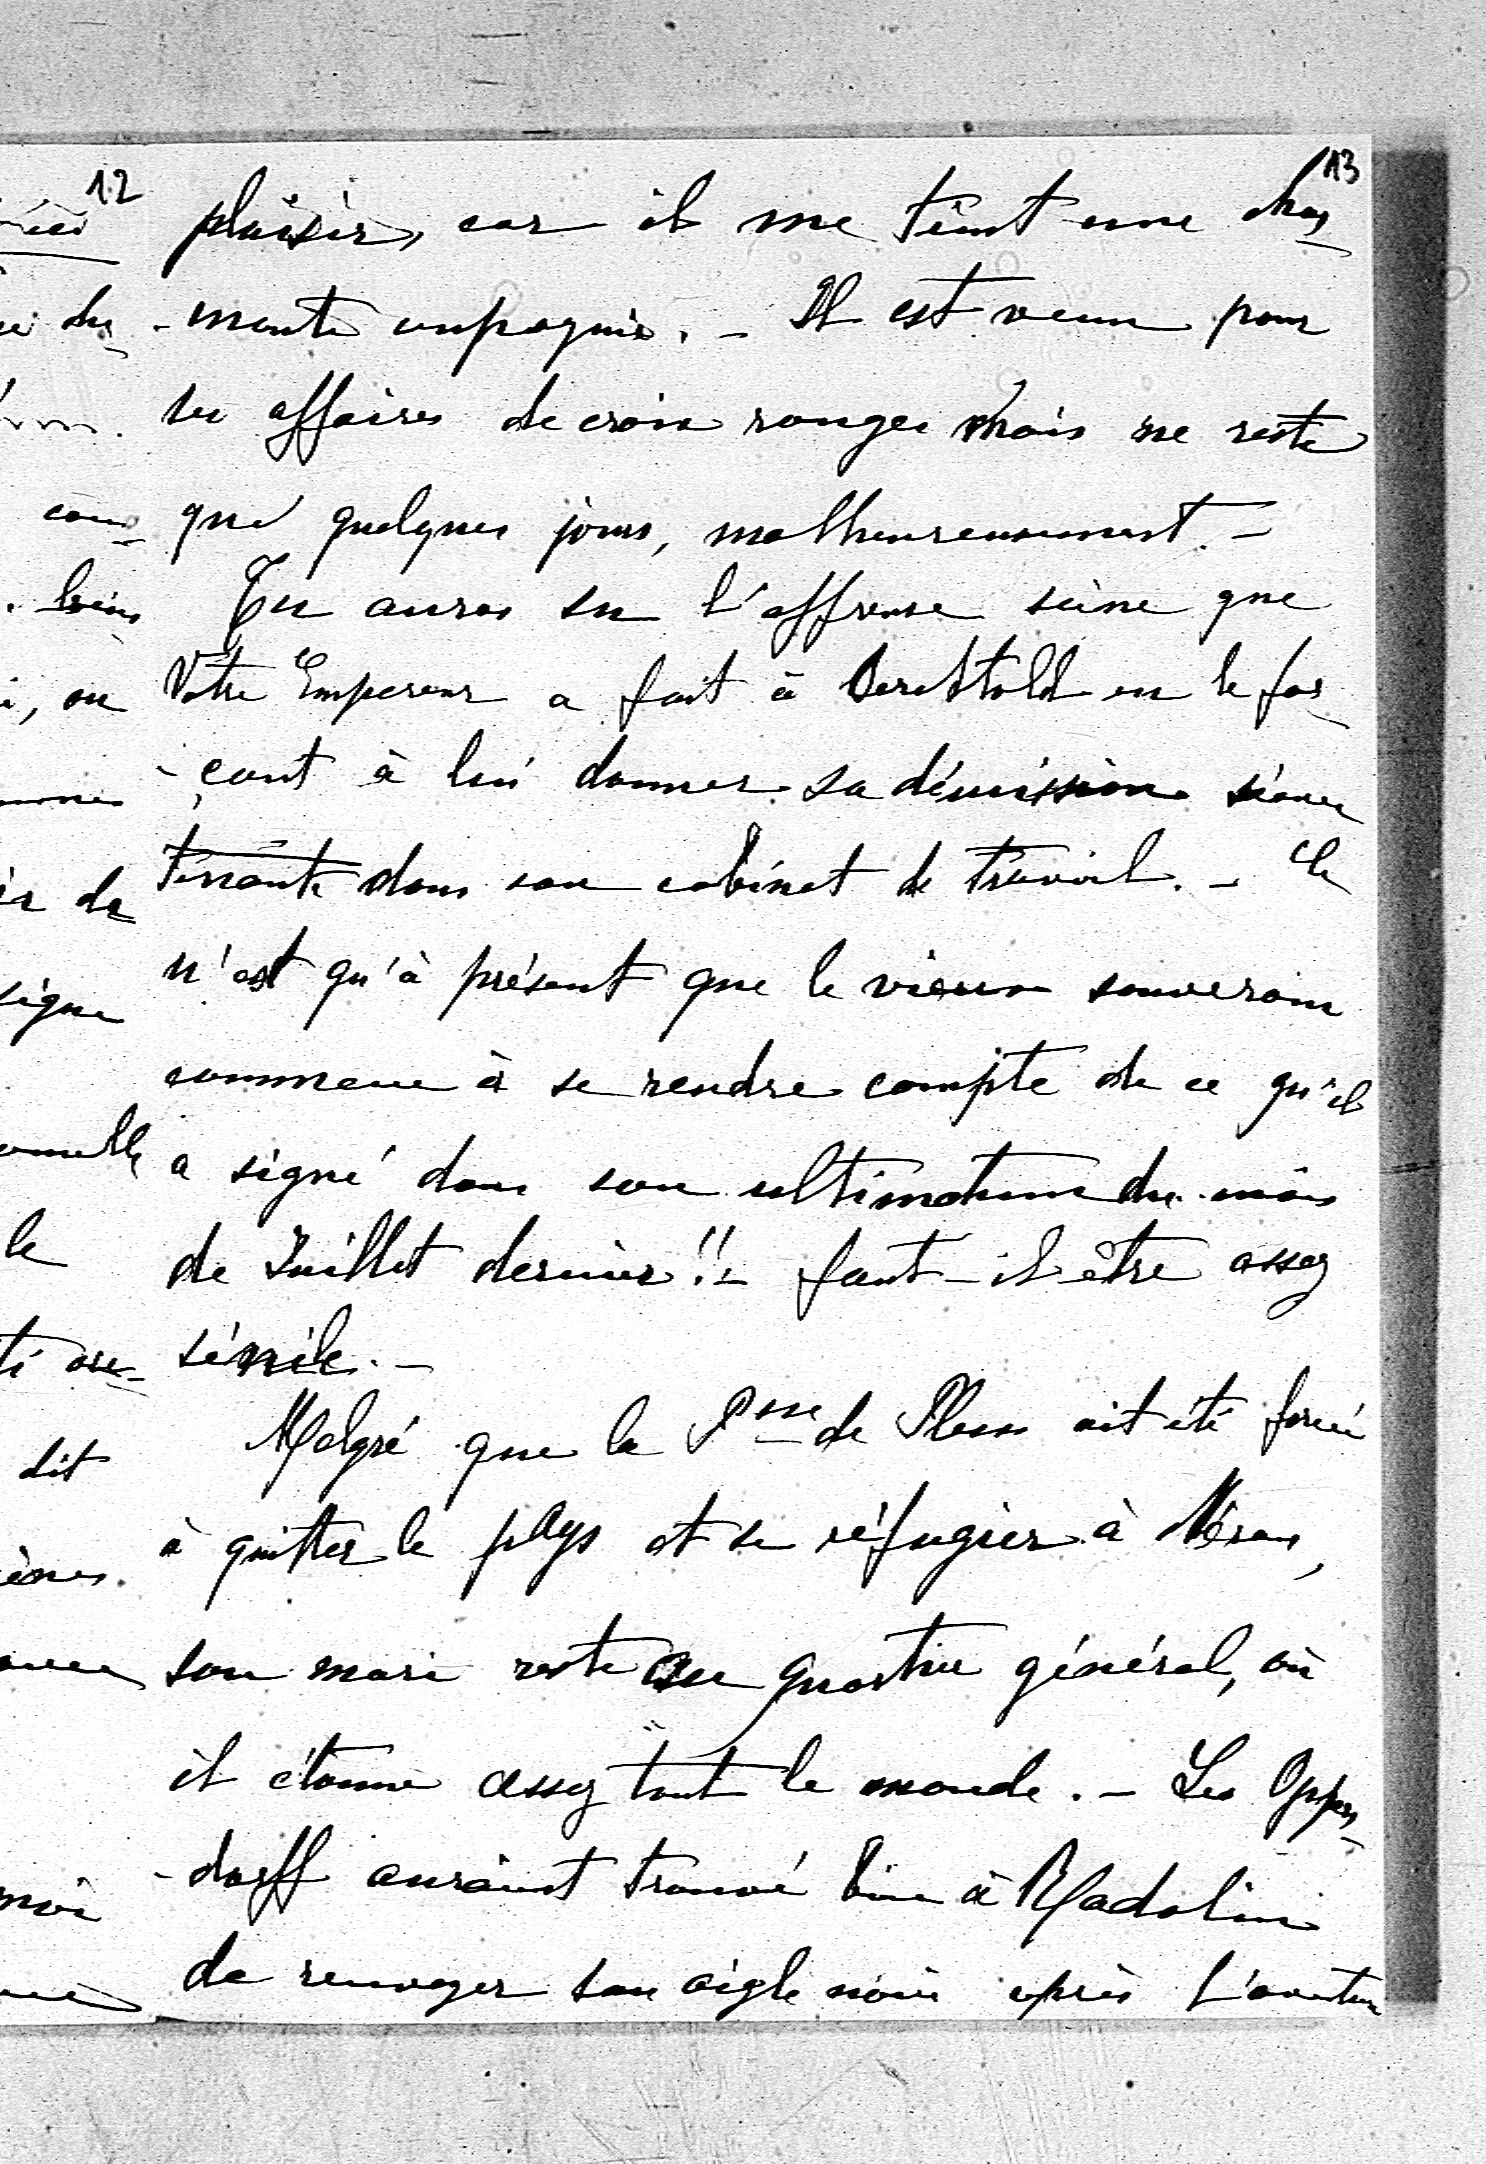 12
13
plaisir, car il me tient une char-
-mante compagnie. - Il est venu pour
les affaires de croix rouges mais ne reste
que quelques jours, malheureusement. -
Tu auras su l'affreuse scène que
Votre Empereur a fait à Berchtold en le for-
-çant à lui donner sa démission séance
tenante dans son cabinet de travail. - Ce
n'est qu'à présent que le vieux souverain
commence à se rendre compte de ce qu'il
a signé dans son ultimatum du mois
de Juillet dernier!! - faut-il être assez
sénile. -
Malgré que la Psse de Pless ait été forcé
à quitter le pays et se réfugier à Méran,
son mari reste au quartier général, où
il étonne assez tout le monde. - Les Oppers-
-dorff auraient trouvé bien à Radolin
de renvoyer son aigle noir après l'aventure